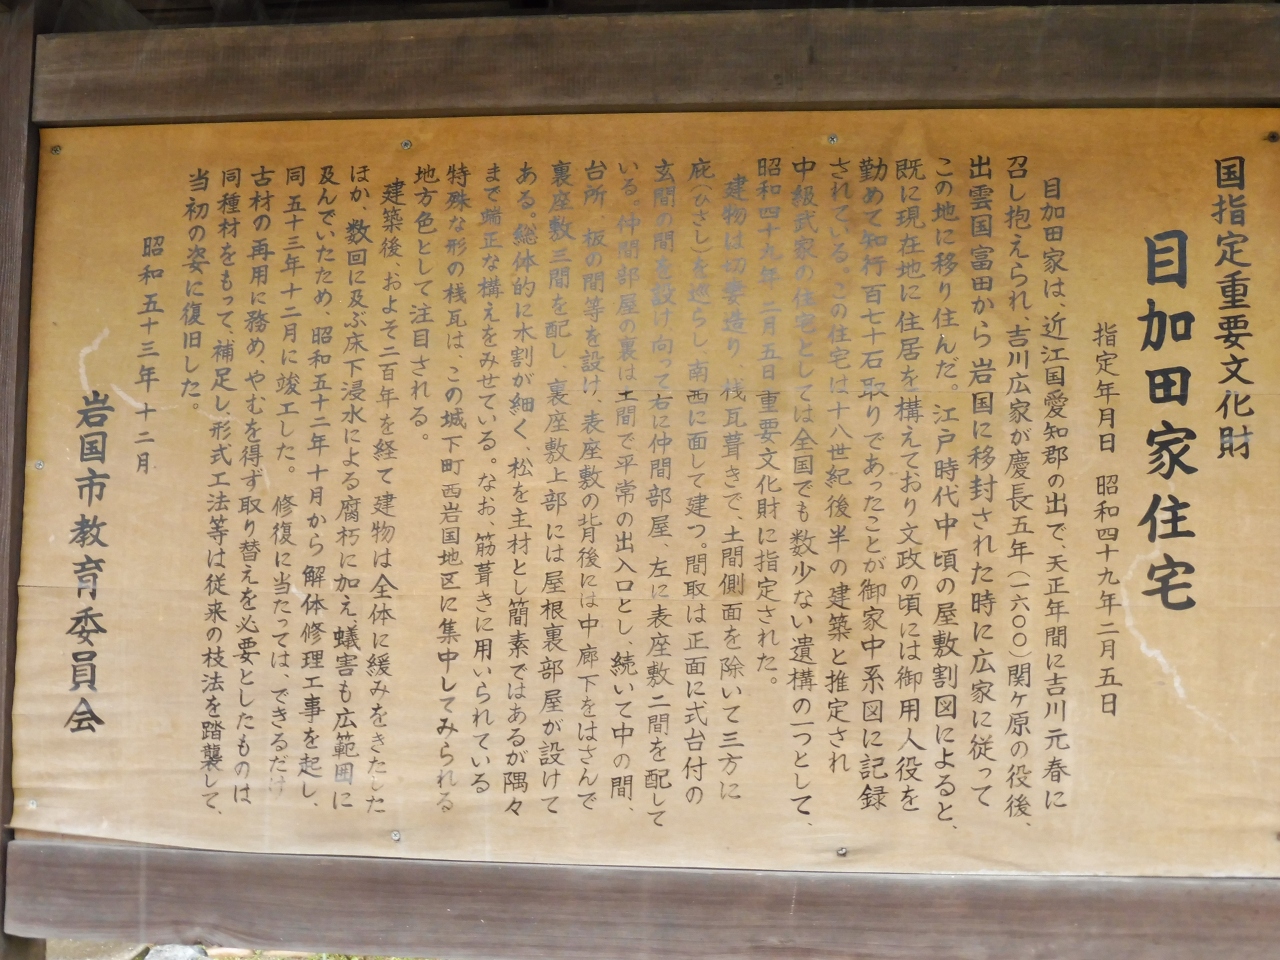 国指定重要文化財
目加田家住宅
指定年月日 昭和四十九年二月五日
目加田家は、近江国愛知郡の出で、天正年間に吉川元春に
召し抱えられ、吉川広家が慶長五年(一六〇〇)関ヶ原の役後、
出雲国富田から岩国に移封された時に広家に従って
この地に移り住んだ。江戸時代中頃の屋敷割図によると、
既に現在地に住居を構えており文政の頃には御用人役を
勤めて知行百七十石取りであったことが御家中系図に記録
されている。この住宅は十八世紀後半の建築と推定され
中級武家の住宅としては全国でも数少ない遺構の一つとして、
昭和四十九年二月五日重要文化財に指定された。
建物は切妻造り、桟瓦葺きで、土間側面を除いて三方に
庇(ひさし)を巡らし、南西に面して建つ。間取は正面に式台付の
玄関の間を設け、向って右に仲間部屋、左に表座敷二間を配して
いる。仲間部屋の裏は土間で平常の出入口とし、続いて中の間、
台所、板の間等を設け、表座敷の背後には中廊下をはさんで
裏座敷三間を配し、裏座敷上部には屋根裏部屋が設けて
ある。総体的に木割が細く、松を主材とし簡素ではあるが隅々
まで端正な構えをみせている。なお、筋葺きに用いられている
特殊な形の桟瓦は、この城下町西岩国地区に集中してみられる
地方色として注目される。
建築後、およそ二百年を経て建物は全体に緩みをきたした
ほか、数回に及ぶ床下浸水による腐朽に加え蟻害も広範囲に
及んでいたため、昭和五十二年十月から解体修理工事を起し、
同五十三年十二月に竣工した。 修復に当たっては、できるだけ
古材の再用に務め、やむを得ず取り替えを必要としたものは
同種材をもって、補足し、形式工法等は従来の枝法を踏襲して、
当初の姿に復旧した。
昭和五十三年十二月
岩国市教育委員会